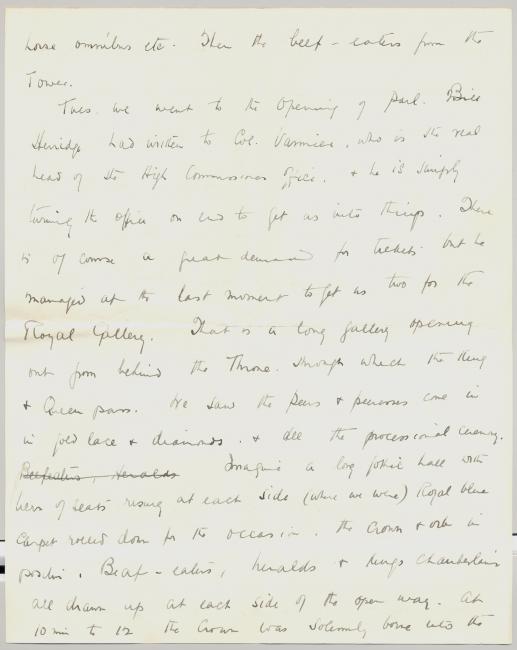 horse omnibus etc. Then the beef-eaters from the
Tower.
Tues. we went to the Opening of Parl. Bill
Herridge had written to Col. Vannier, who is the real
head of the High Commissioners Office. & he is simply
turning the office on end to get us into things. There
is of course a great demand for tickets but he
managed at the last moment to get us two for the
Royal Gallery. That is a long gallery opening
out from behind the Throne. through which the King
& Queen pass. We saw the Peers & peeresses come in
in gold lace & diamonds. & all the processional ceremony.
Beefeaters, Heralds Imagine a long gothic hall with
tiers of seats rising at each side (where we were) Royal blue
carpet rolled down for the occasion. the Crown & orb in
position. Beaf-eaters, heralds & Kings Chamberlains
all drawn up at each side of the open way. At
10 min to 12 the Crown was solemnly borne into the